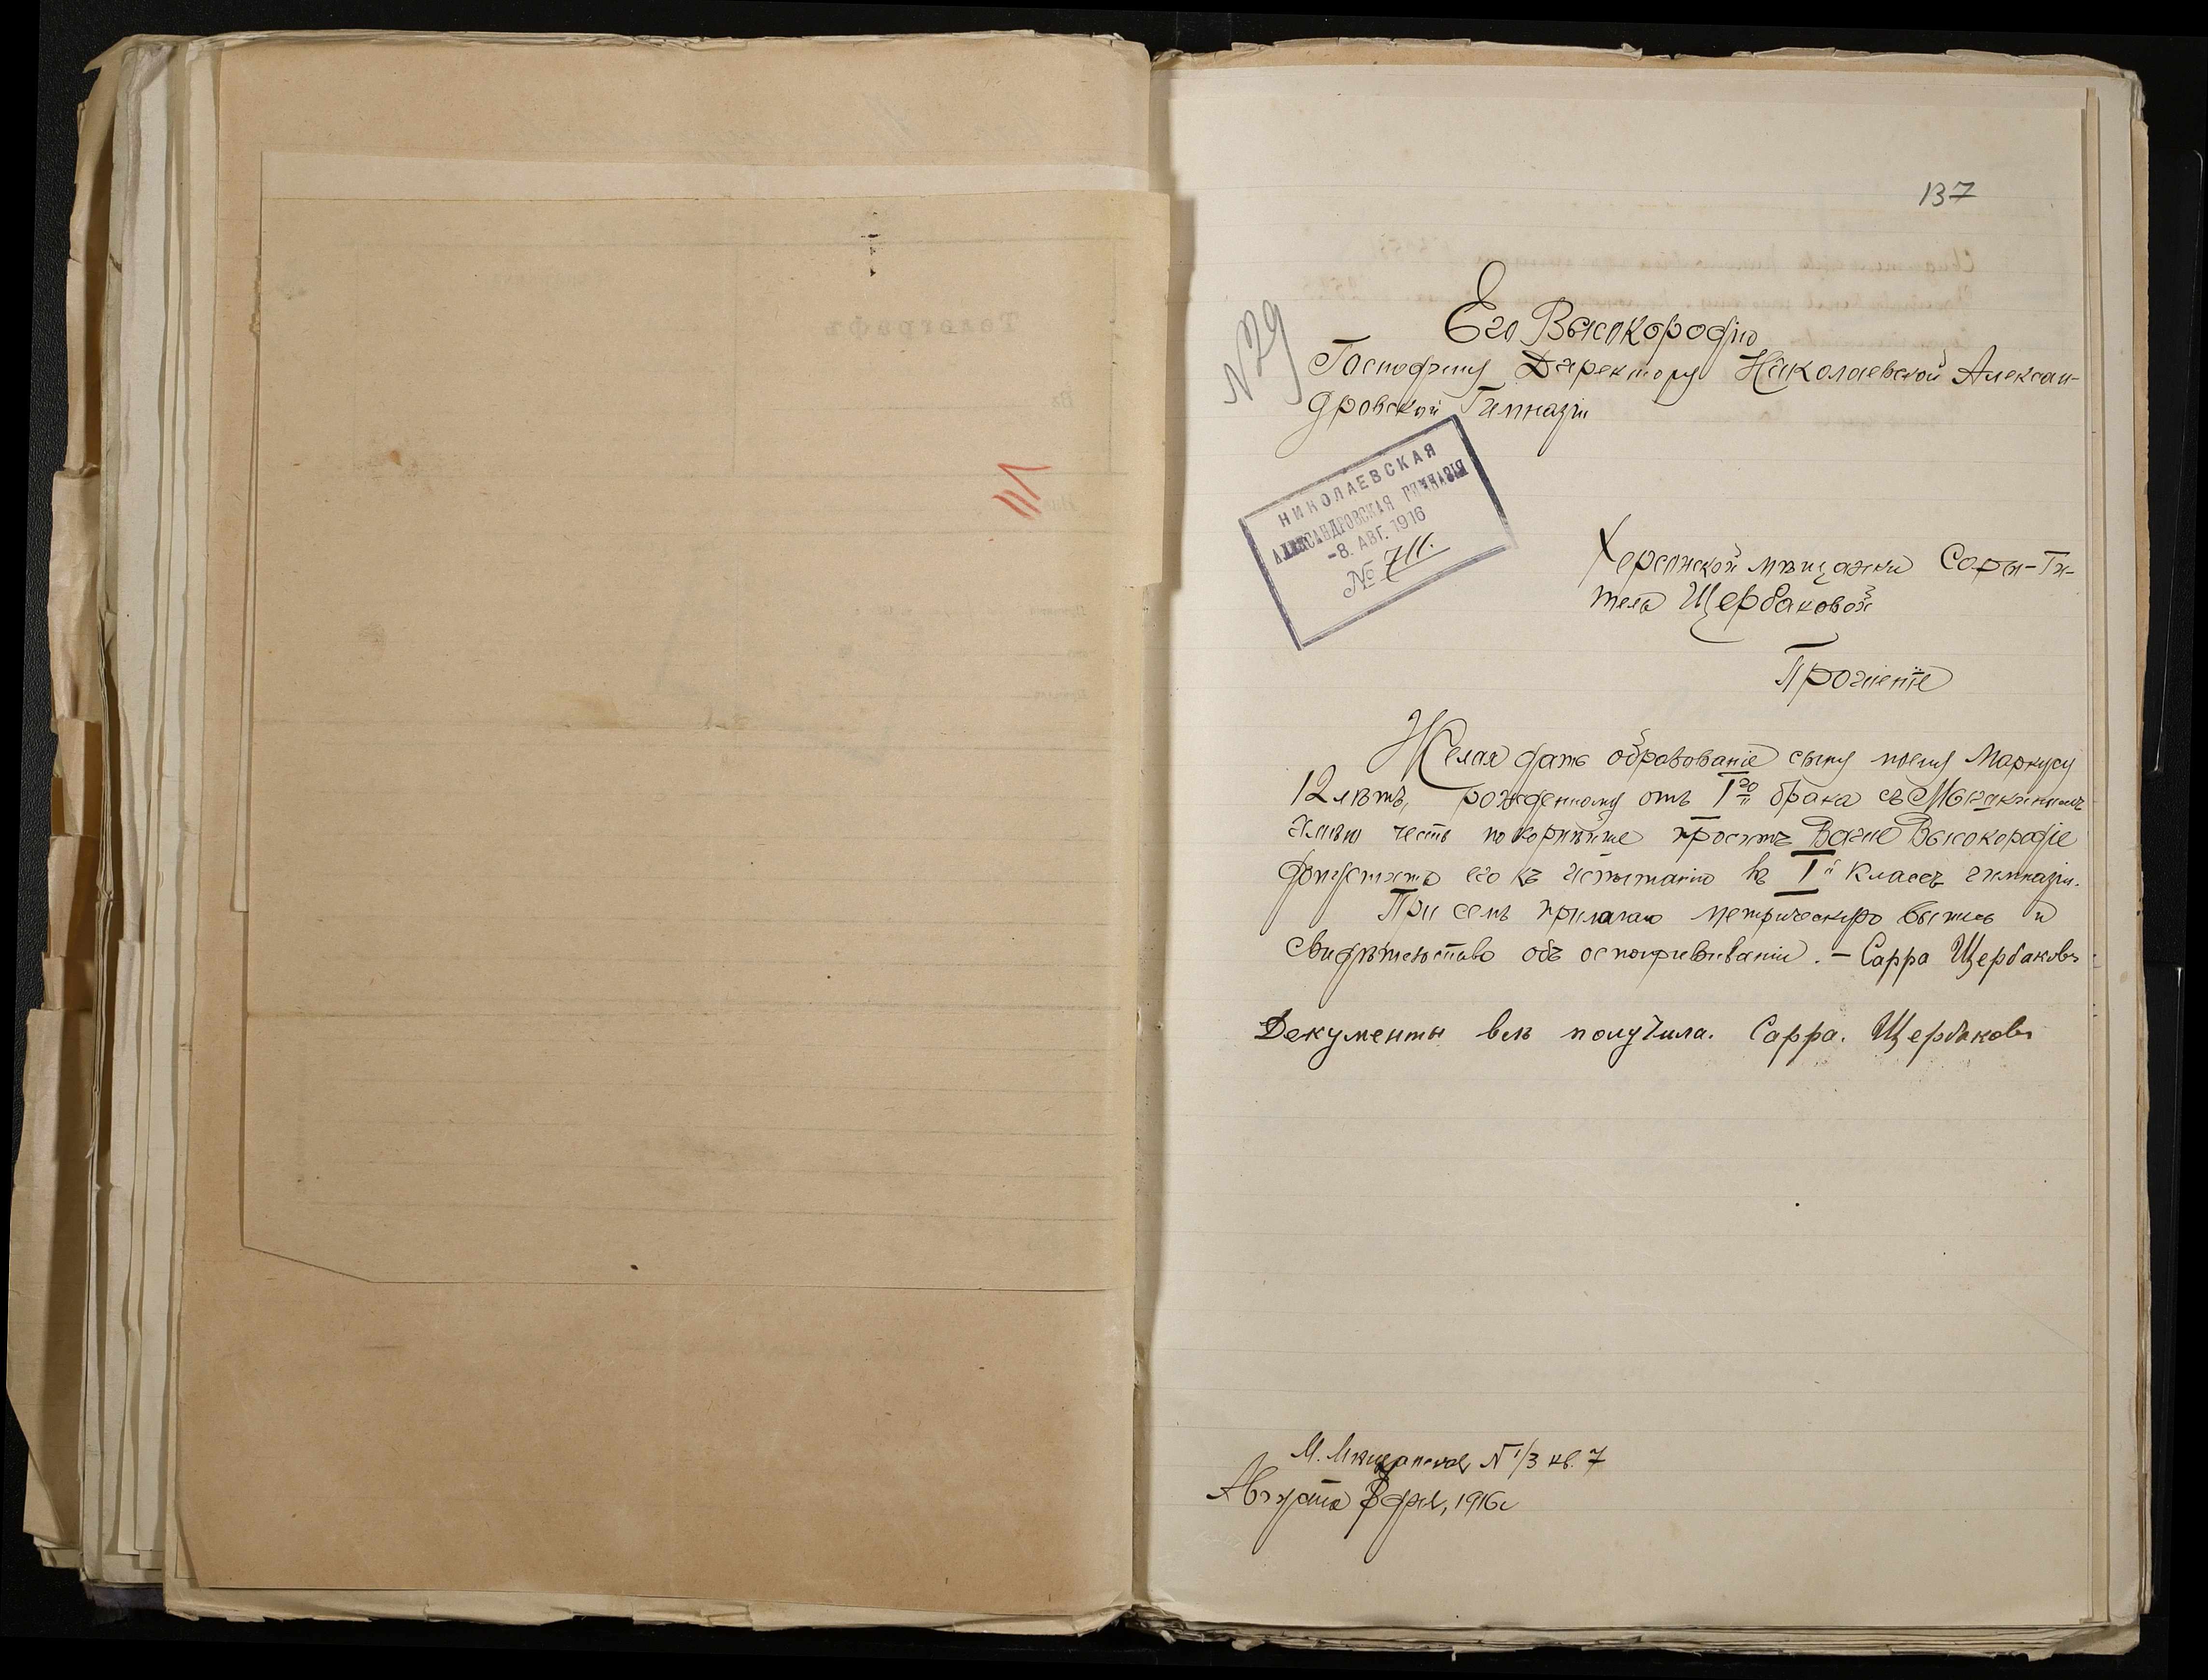 137
№ 79
Его Высокородію
Господину Директору Николаевской Алексан-
дровской Гимназіи
НИКОЛАЕВСКАЯ
АЛЕКСАНДРОВСКАЯ ГИМНАЗІЯ
-8. АВГ. 1916
№ 711.
Херсонской мѣщанки Соры-Ги-
тела Щербаковой
Прошеніе
Желая дать образованіе сыну моему Маркусу
12 лѣтъ, рожденному отъ I го брака съ
имѣю честь покорнѣйше просить Ваше Высокородіе
допустить его къ испытанію въ I й классъ гимназіи.
При семъ прилагаю метрическую выпись и
свидѣтельство объ оспопрививаніи. – Сарра Щербаковъ
Документы всѣ получила. Сарра. Щербаковъ
М. № 1/3 кв. 7
Августа 8 дня, 1916 г
Телеграфъ